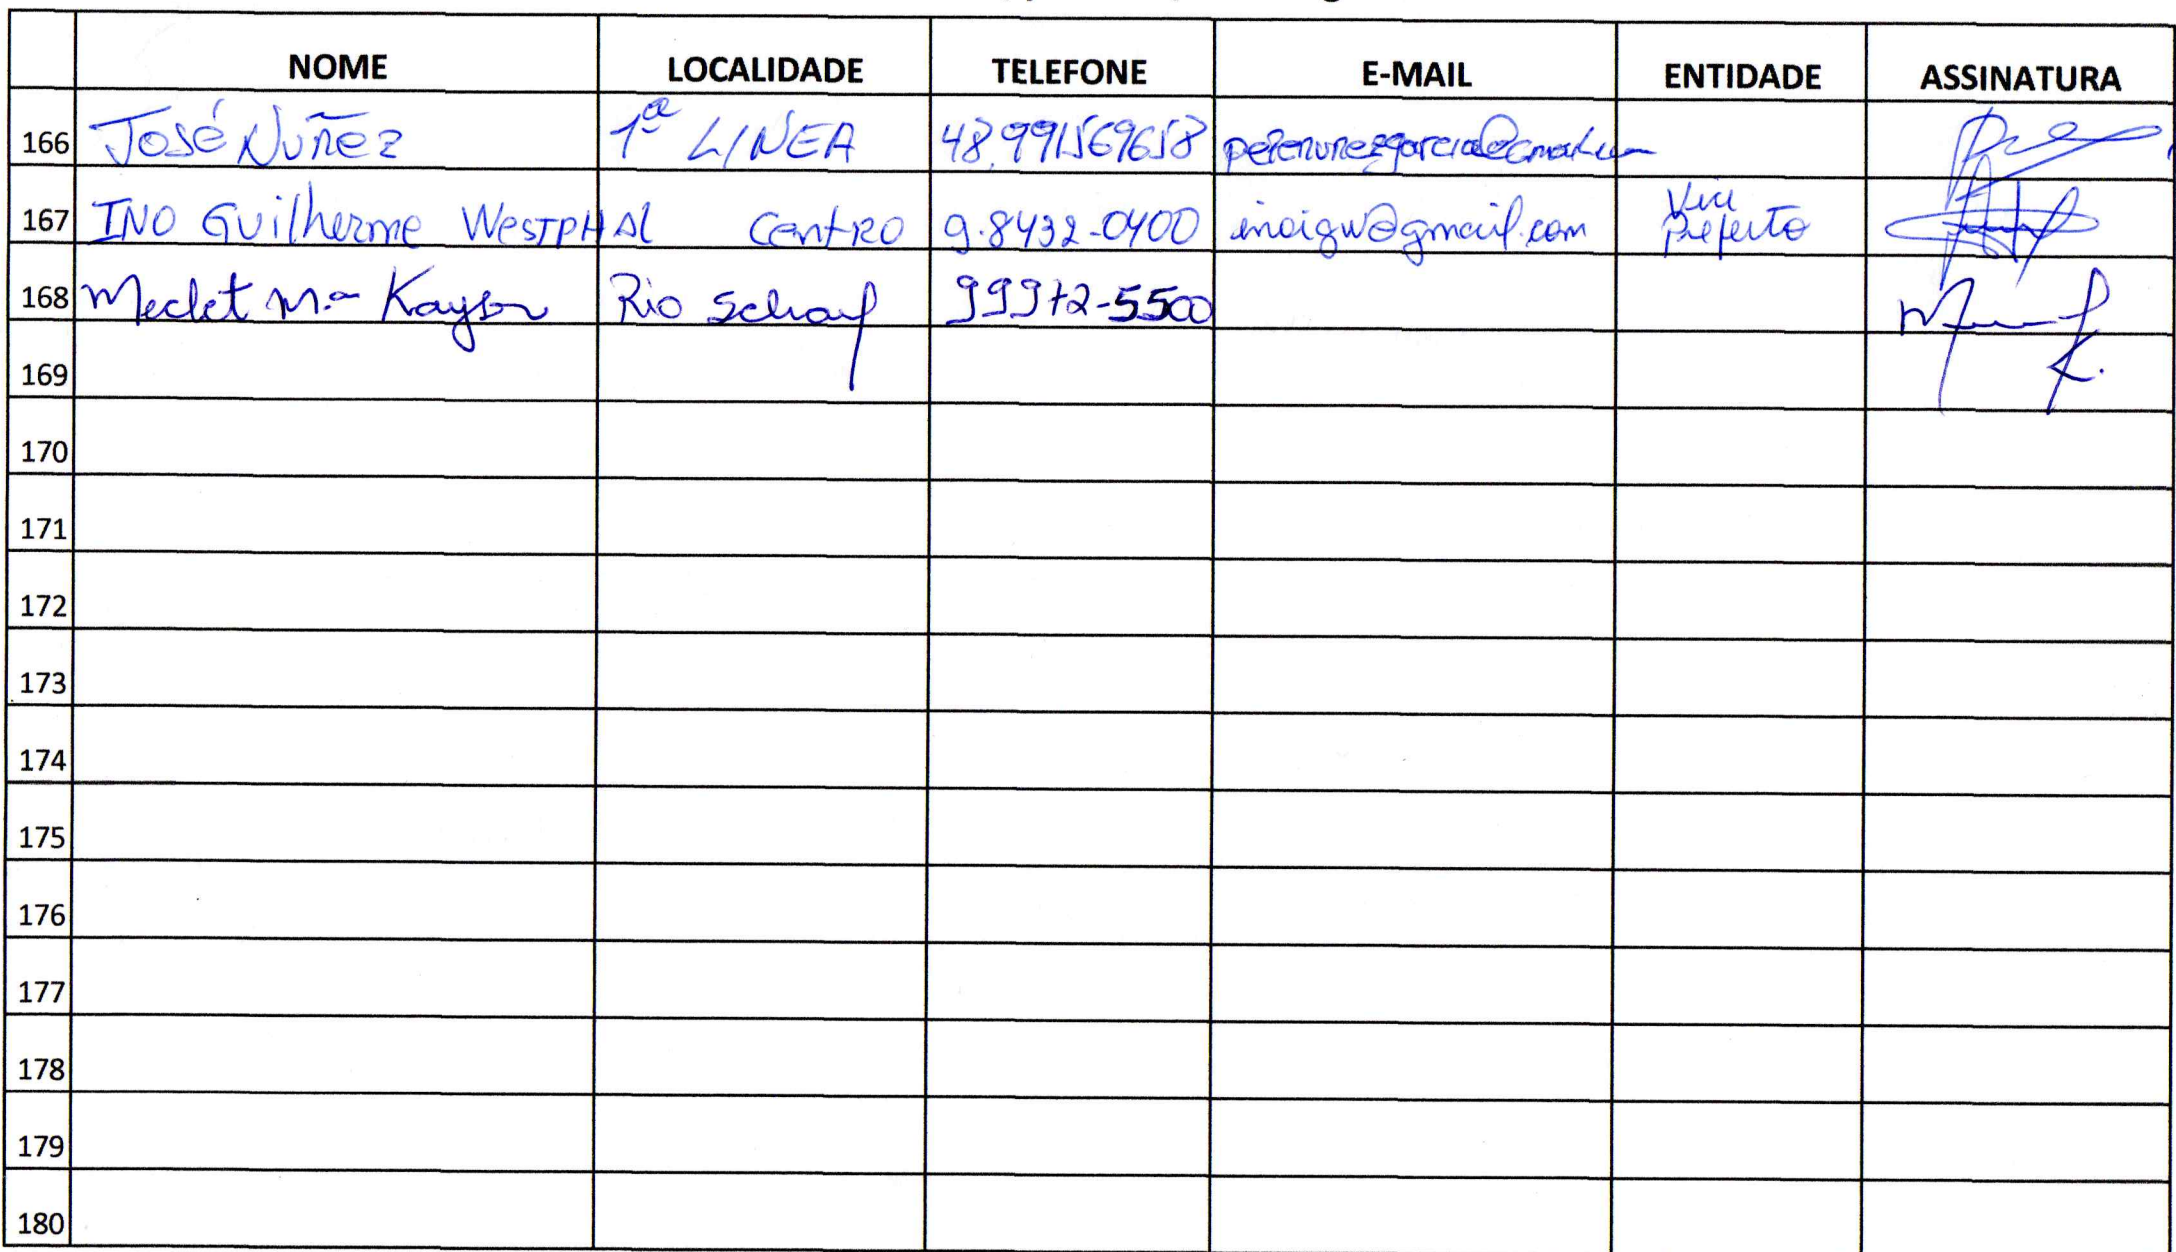 NOME LOCALIDADE TELEFONE E-MAIL ENTIDADE ASSINATURA
166 José Nuñez 1ª LINEA 48.991569658
167 INO Guilherme WESTPHAL CentRO 9.8432-0400 inoigw@gmail.com Vice Prefeito
168 Meclet Mª Kayser Rio Scharf 99972-5500
169
170
171
172
173
174
175
176
177
178
179
180